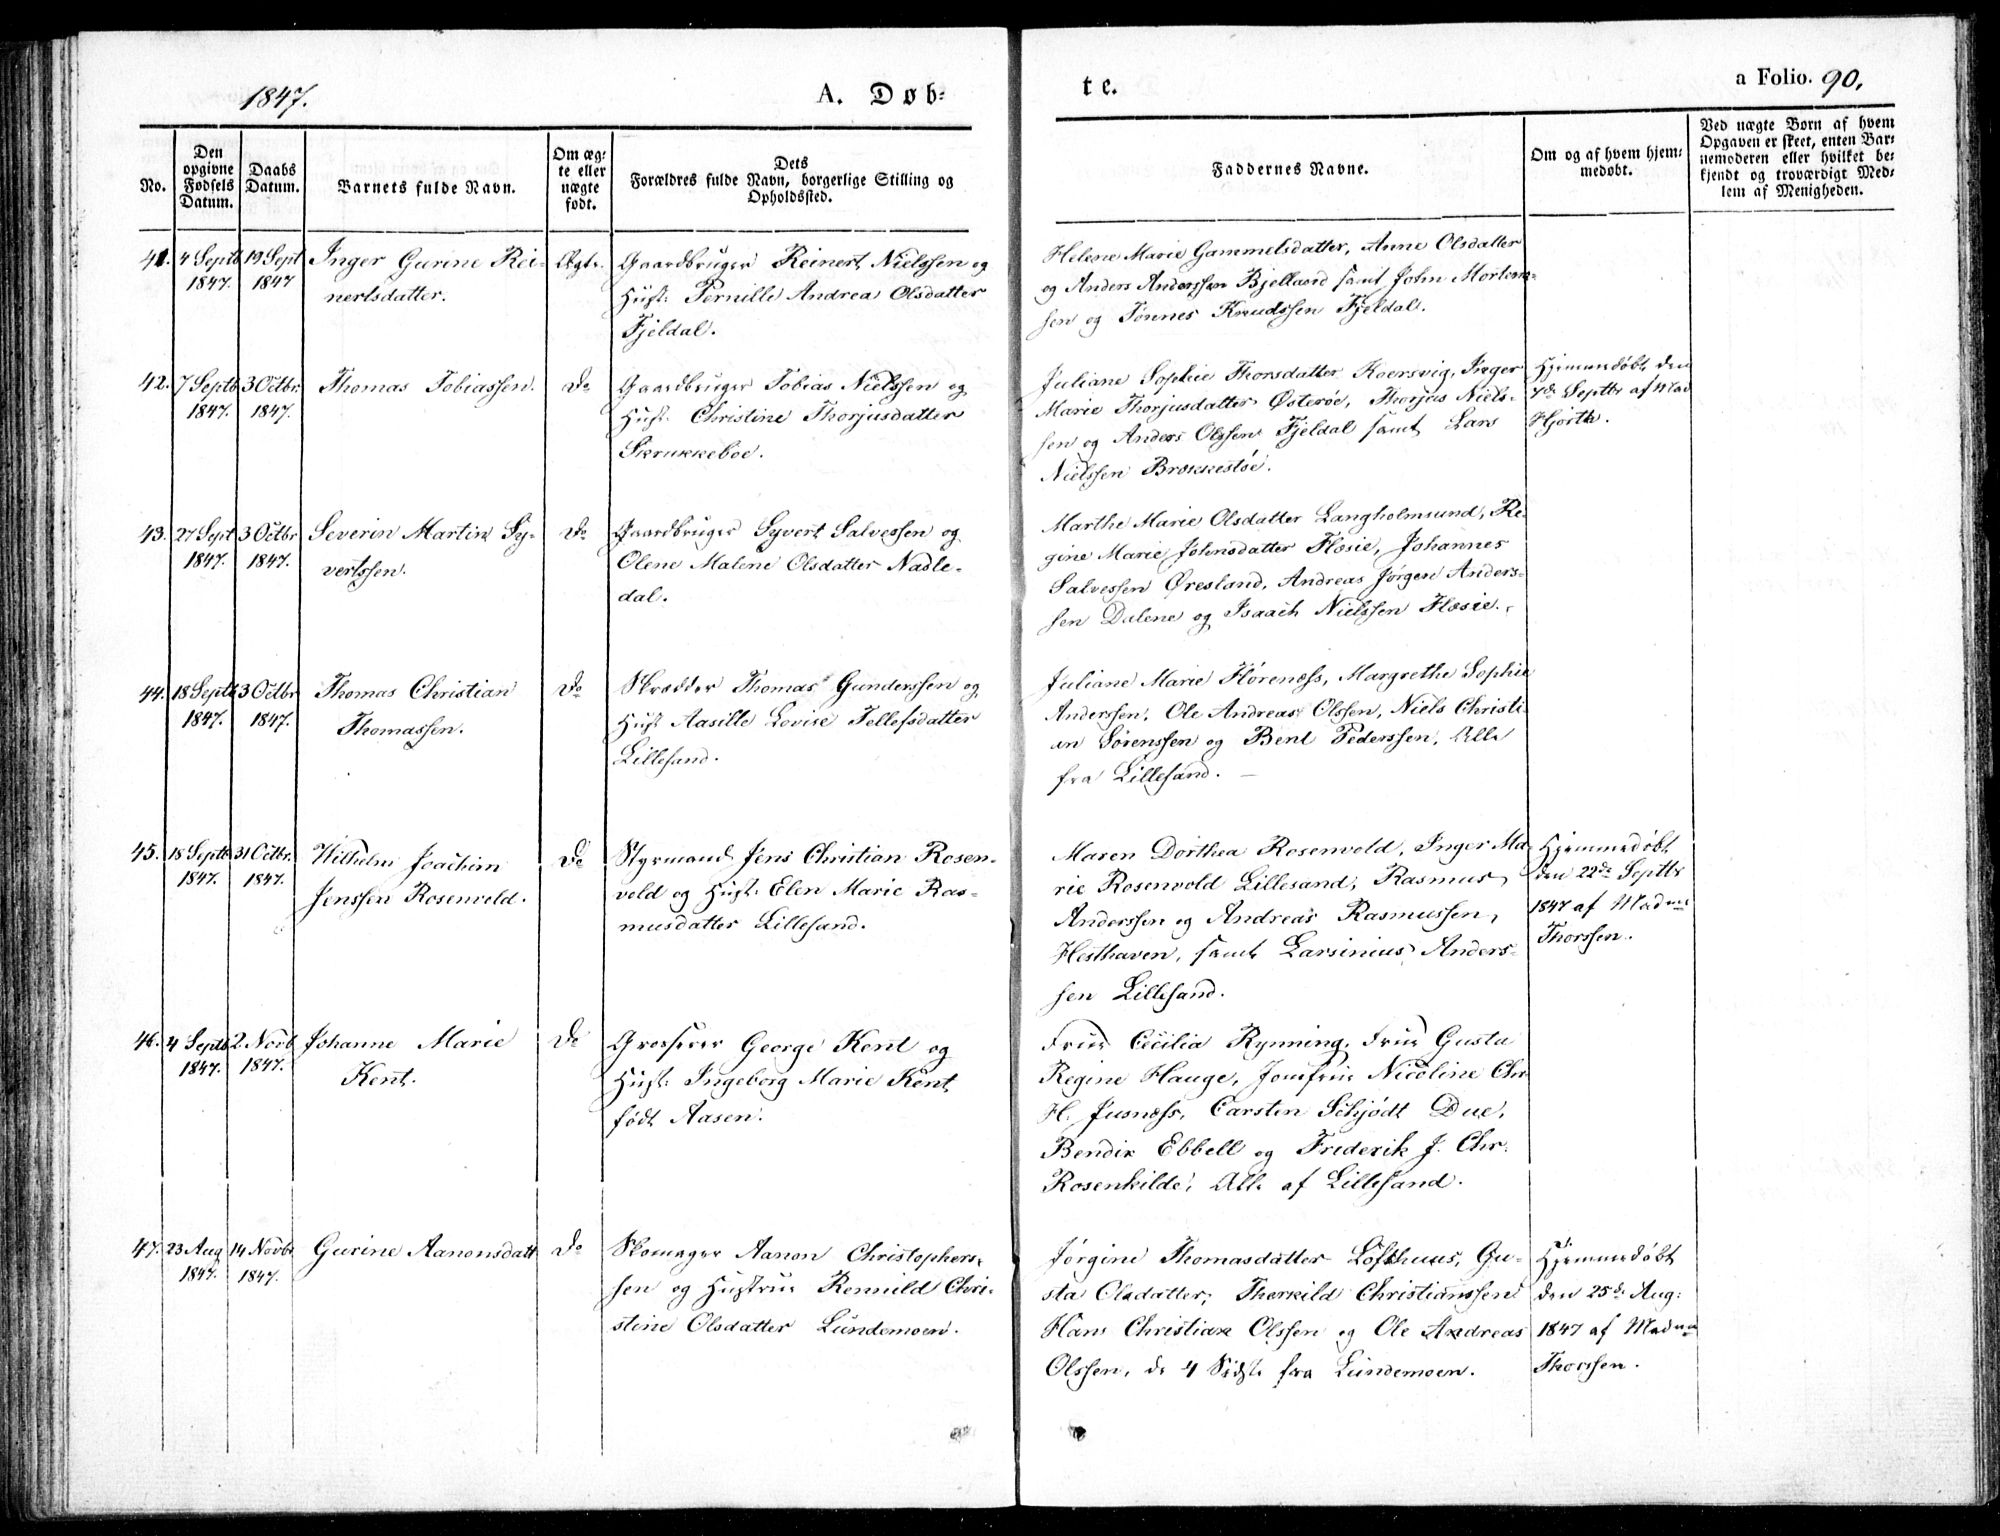 1847.
A. Døb-
te.
a Folio. 90.
No.
Den opgivne Fødsels Datum.
Daabs Datum.
Barnets fulde Navn.
Om ægte eller uægte født.
Dets Forældres fulde Navn, borgerlige Stilling og Opholdssted.
Faddernes Navne.
Om og af hvem hjemmedøbt.
Ved uægte Børn af hvem Opgaven er skeet, enten Barnemoderen eller hvilket bekjendt og troværdigt Medlem af Menigheden.
41.
4 Septb
1847.
19 Sept
1847
Inger Gurine Rei-
nertsdatter.
Ægte.
Gaardbruger Reinert Nielssen og
Hust: Pernille Andrea Olsdatter
Fjeldal.
Helene Marie Gammelsdatter, Anne Olsdatter
og Anders Anderssen Bjelland samt John Morten-
sen og Tønnes Knudssen Fjeldal.
42.
7 Septb
1847.
3 Octbr.
1847.
Thomas Tobiassen.
Do
Gaardbruger Tobias Nielssen og
Hust: Christine Thorjusdatter
Skrukkeboe.
Juliane Sophie Thorsdatter Koersvig, Inger
Marie Thorjusdatter Østerøe, Thorjus Niels-
sen og Anders Olssen Fjeldal samt Lars
Nielssen Brækkestøe.
Hjemmedøbt den
7de Septbr af Mad
Hjorth.
43.
27 Sept
1847.
3 Octbr
1847.
Severin Martin Sy-
vertssen.
Do
Gaardbruger Syvert Salvessen og
Olene Malene Olsdatter Nadle-
dal.
Marthe Marie Olsdatter Langholmsund, Re-
gine Marie Johnsdatter Høsie, Johannes
Salvessen Øresland, Andreas Jørgen Anders-
sen Dalene og Isaach Nielssen Høsie.
44.
18 Septb
1847.
3 Octbr
1847.
Thomas Christian
Thomassen.
Do
Skrædder Thomas Gunderssen og
Hust Aasille Lovise Tellefsdatter
Lillesand.
Juliane Marie Hørenæss, Margrethe Sophie
Anderssen, Ole Andreas Olssen, Niels Christi-
an Sørenssen og Bent Pederssen, Alle
fra Lillesand.
45.
18 Septb
1847.
31 Octbr.
1847.
Wilhelm Joachim
Jenssen Rosenvold.
Do
Styrmand Jens Christian Rosen-
vold og Hust: Elen Marie Ras-
musdatter Lillesand.
Maren Dorthea Rosenvold, Inger Ma-
rie Rosenvold Lillesand, Rasmus
Anderssen og Andreas Rasmussen,
Hesthaven, samt Larsinius Anders-
sen Lillesand.
Hjemmedøbt
den 22de Septbr
1847 af Madme
Thorssen.
46.
4 Septb
1847.
2. Novb
1847.
Johanne Marie
Kent.
Do
Grosserer George Kent og
Hust: Ingeborg Marie Kent
født Aasen.
Frue Cecilia Rynning, Frue Gusta
Regine Hauge, Jomfrue Nicoline Chr
H. Jusnæss, Carsten Schjødt Due,
Bendix Ebbell og Frederik J. Chr:
Rosenkilde, Alle af Lillesand.
47.
23 Aug
1847.
14 Novbr
1847.
Gurine Aanonsdatt
Do
Skomager Aanon Christophers-
sen og Hustrue Rennild Chri-
stine Olsdatter Lundemoen.
Jørgine Thomasdatter Lofthuus, Gu-
sta Olsdatter, Therkild Christianssen
Hans Christian Olssen og Ole Andreas
Olssen, de 4 Sidste fra Lundemoen.
Hjemmedøbt
den 25de Aug:
1847 af Madme
Thorssen.